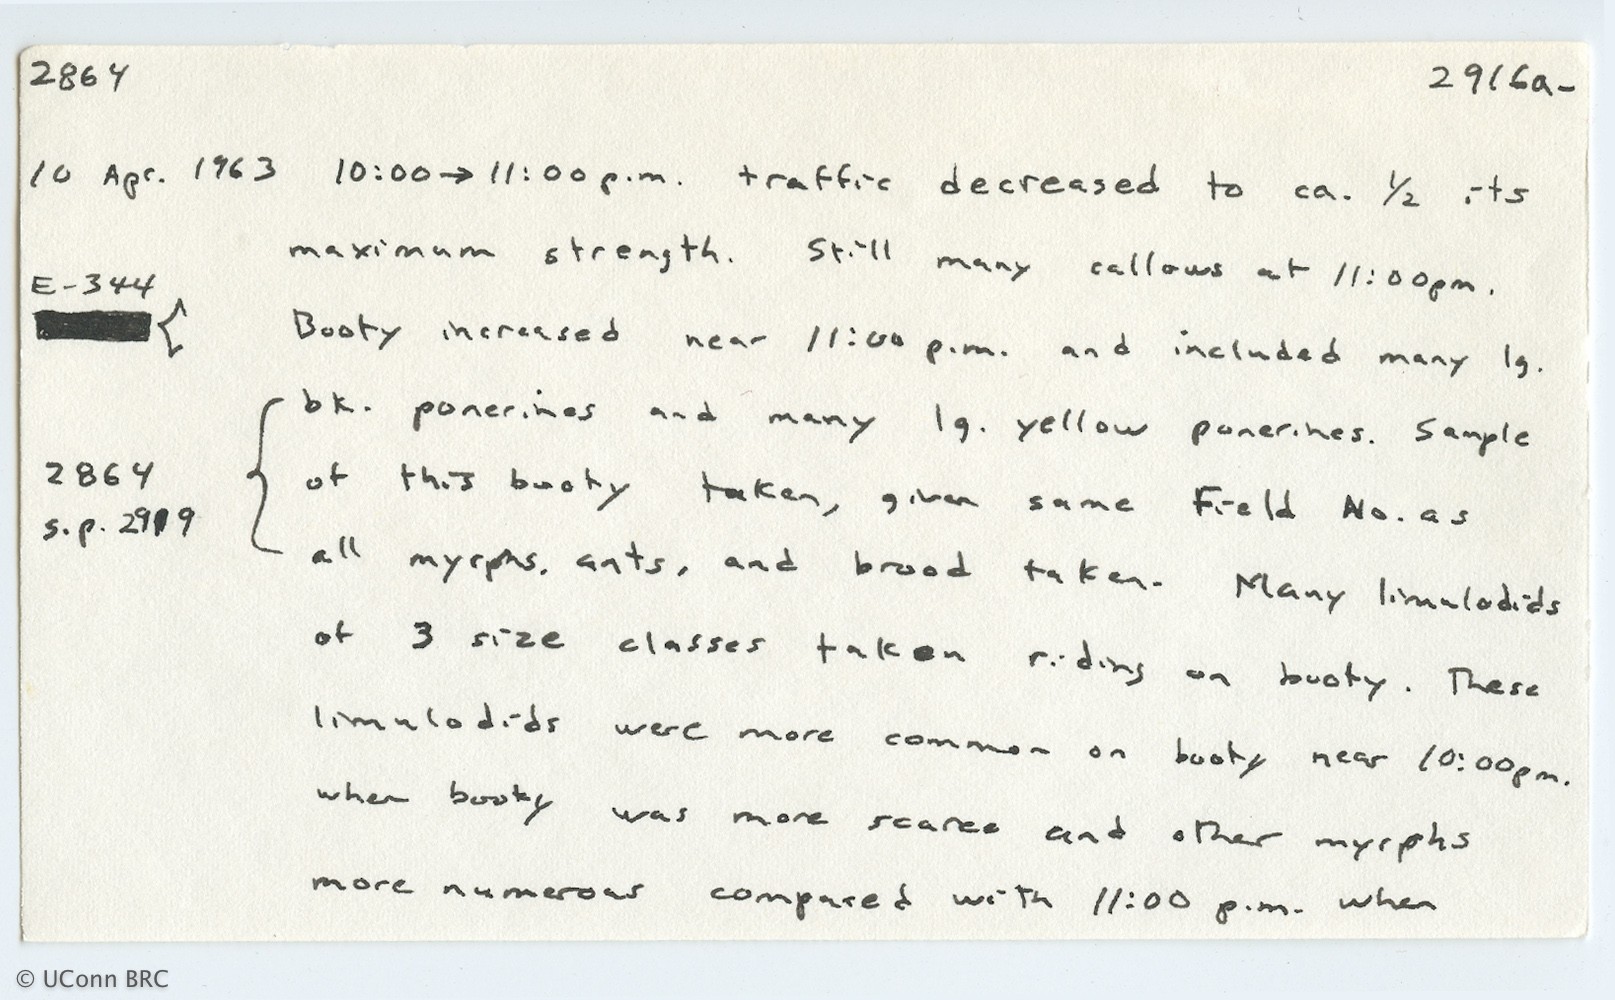 2864 2916a-
10 Apr. 1963 10:00→11:00p.m. traffic decreased to ca. ½ its
maximum strength. Still many callows at 11:00pm.
E-344
Booty increased near 11:00 p.m. and included many lg.
bk. ponerines and many lg. yellow ponerines. Sample
2864 of this booty taken, given same Field No. as
s.p. 2919
all myrphs, ants, and brood taken. Many limulodids
of 3 size classes taken riding on booty. These
limulodids were more common on booty near 10:00pm.
when booty was more scarce and other myrphs
more numerous compared with 11:00 p.m. when
© UConn BRC